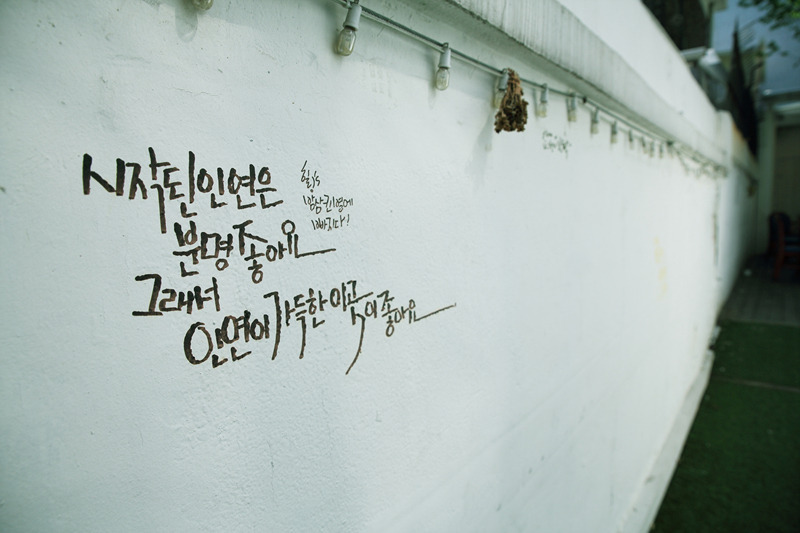 시작된 인연은
분명 좋아요
그래서
인연이 가득한 이곳이 좋아요
빠지다!